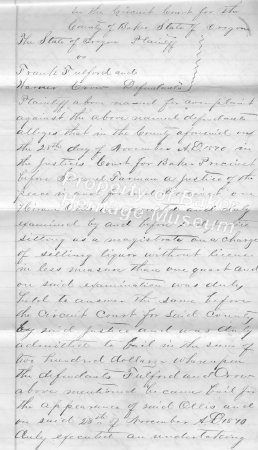 In the Circuit Court for the
County of Baker State of Oregon
The State of Oregon Plaintiff
vs
Frank Fulford and
Crow Defendants
Plaintiff above named for complaint
against the above named defendants
alleges that in the County aforesaid on
the 28th day of November A.D. 1870 in
the Justices Court for Baker Precinct
before as Justice of the
Peace in and for said Precinct one
Ollis was duly
examined by and before
sitting as a magistrate on a charge
of selling liquor without license
in less measure than one quart and
on said examination was duly
held to answer the same before
the Circuit Court for said County
by said justice and was duly
admitted to bail in the sum of
two hundred dollars whereupon
the defendants Fulford and Crow
above mentioned became bail for
the appearance of said Ollis and
on said 28th of November A.D. 1870
duly executed an undertaking
Property of
Heritage Museum